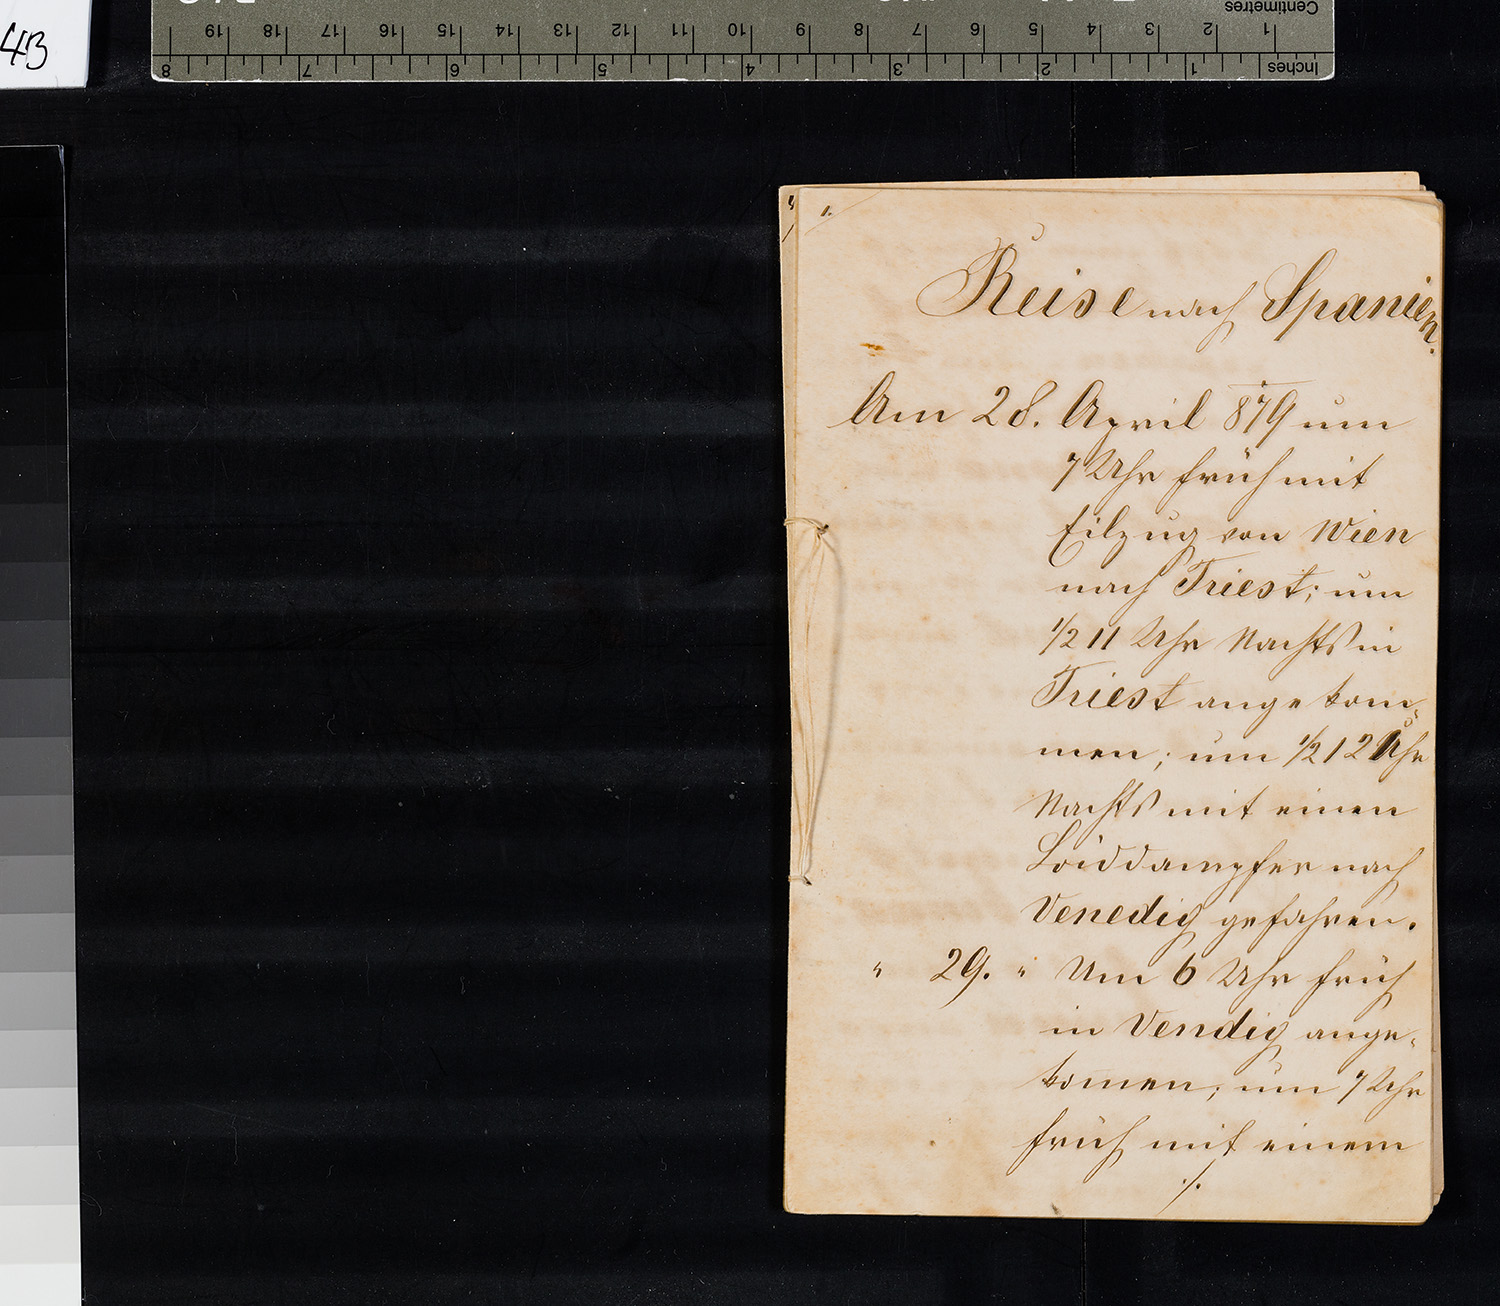 4B
Centimetres
1 2 3 4 5 6 7 8 9 10 11 12 13 14 15 16 17 18 19
Inches 1 2 3 4 5 6 7 8
1.
Reise nach Spanien.
Am 28. April 879 um
7 Uhr früh mit
Eilzug von Wien
nach Triest; um
1/2 11 Uhr Nachts in
Triest angekom-
men; um 1/2 12 Uhr
Nachts mit einen
Loiddampfer nach
Venedig gefahren.
" 29. " Um 6 Uhr früh
in Vendig ange-
komen; um 7 Uhr
früh mit einem
./.